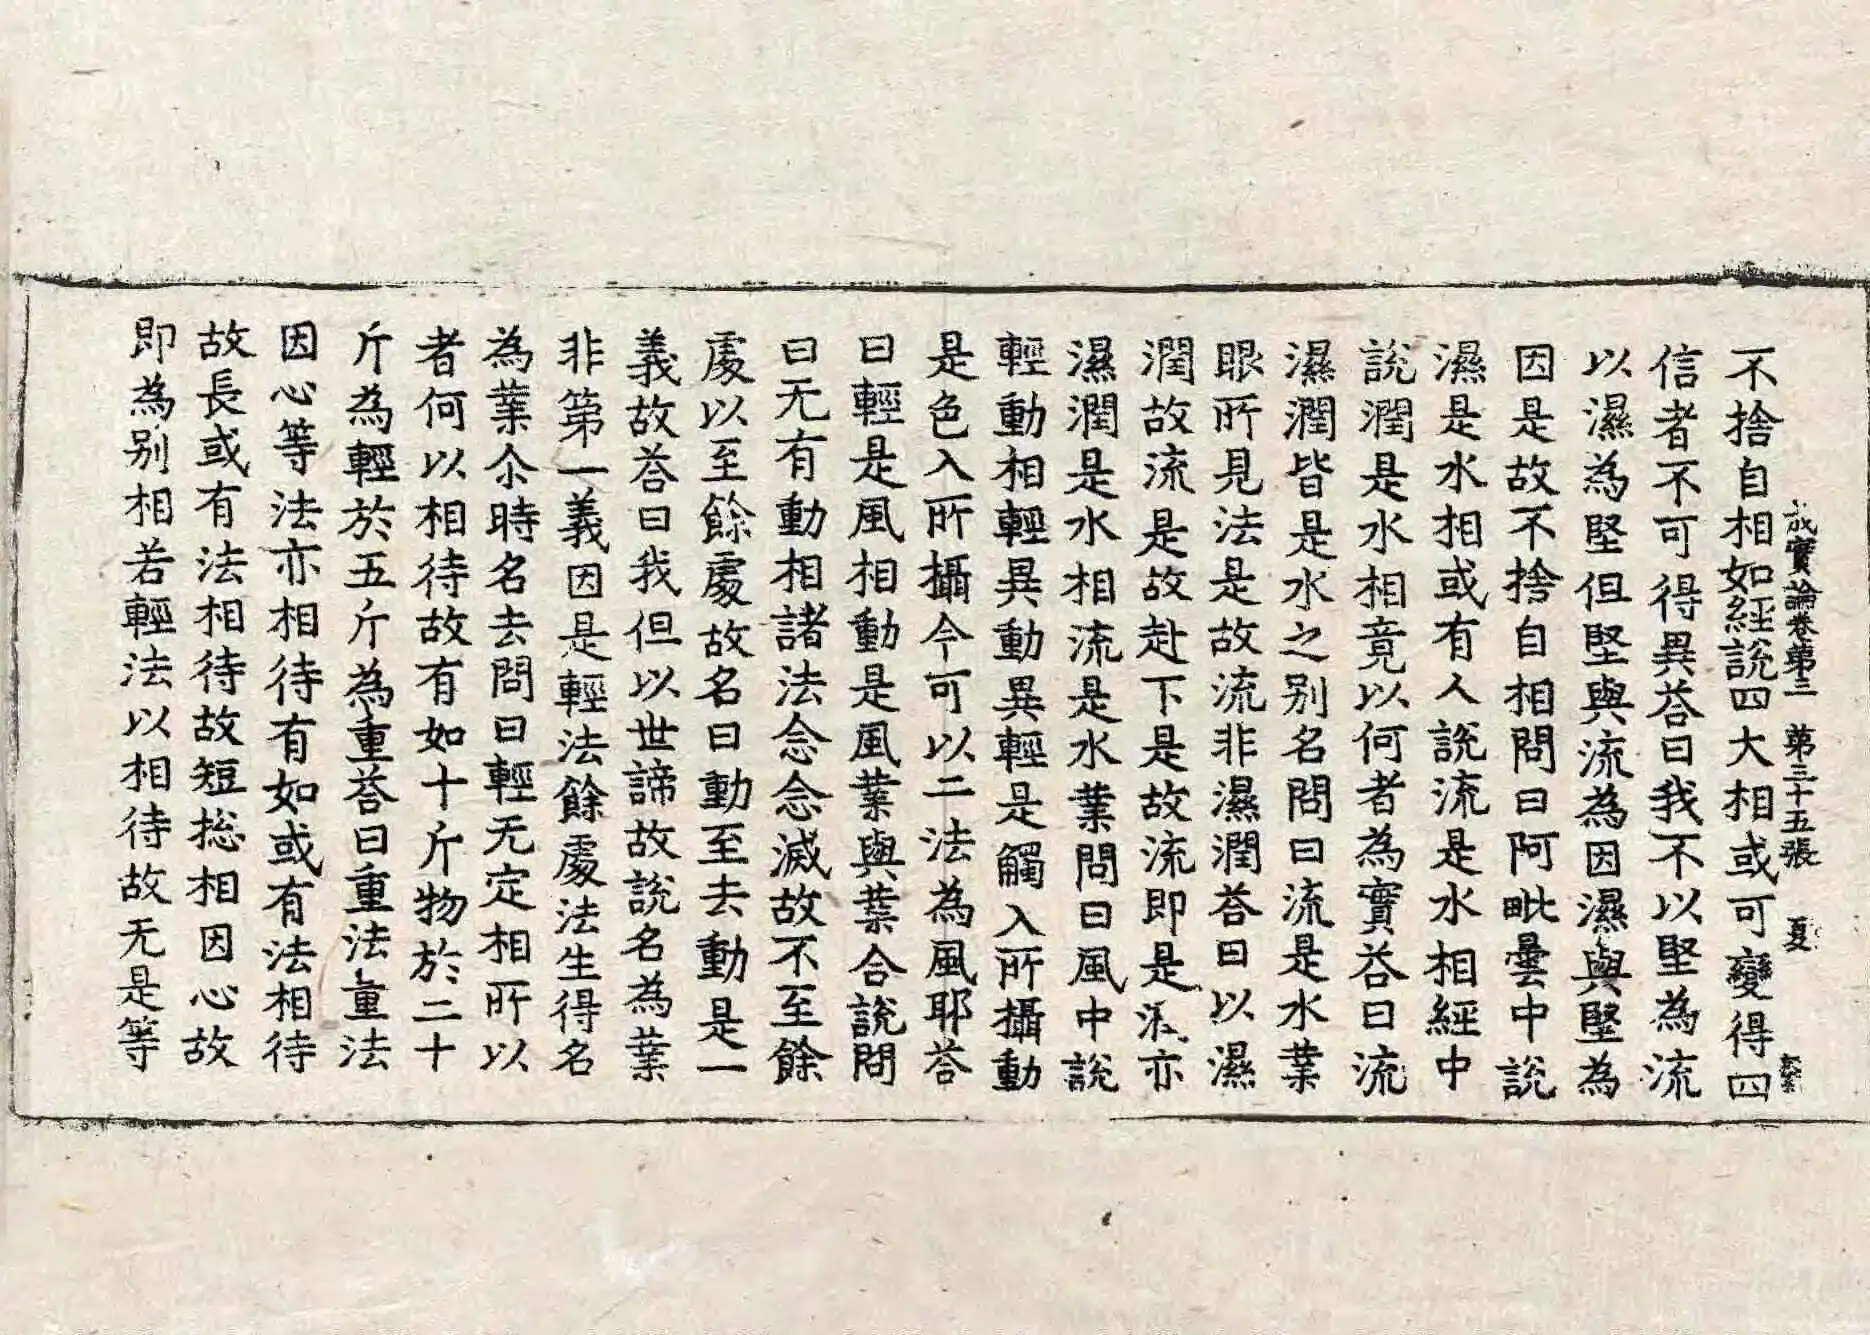 成實論卷第三　第三十五張　夏
不捨自相如經說四大相或可變得四
信者不可得異荅曰我不以堅為流
以濕為堅但堅與流為因濕與堅為
因是故不捨自相問曰阿毗曇中說
濕是水相或有人說流是水相經中
說潤是水相竟以何者為實荅曰流
濕潤皆是水之别名問曰流是水業
眼所見法是故流非濕潤荅曰以濕
潤故流是故赴下是故流即是濕亦
濕潤是水相流是水業問曰風中說
輕動相輕異動異輕是觸入所攝動
是色入所攝今可以二法為風耶荅
曰輕是風相動是風業與業合說問
曰无有動相諸法念念滅故不至餘
處以至餘處故名曰動至去動是一
義故荅曰我但以世諦故說名為業
非第一義因是輕法餘處法生得名
為業尒時名去問曰輕无定相所以
者何以相待故有如十斤物於二十
斤為輕於五斤為重荅曰重法量法
因心等法亦相待有如或有法相待
故長或有法相待故短捴相因心故
即為别相若輕法以相待故无是等